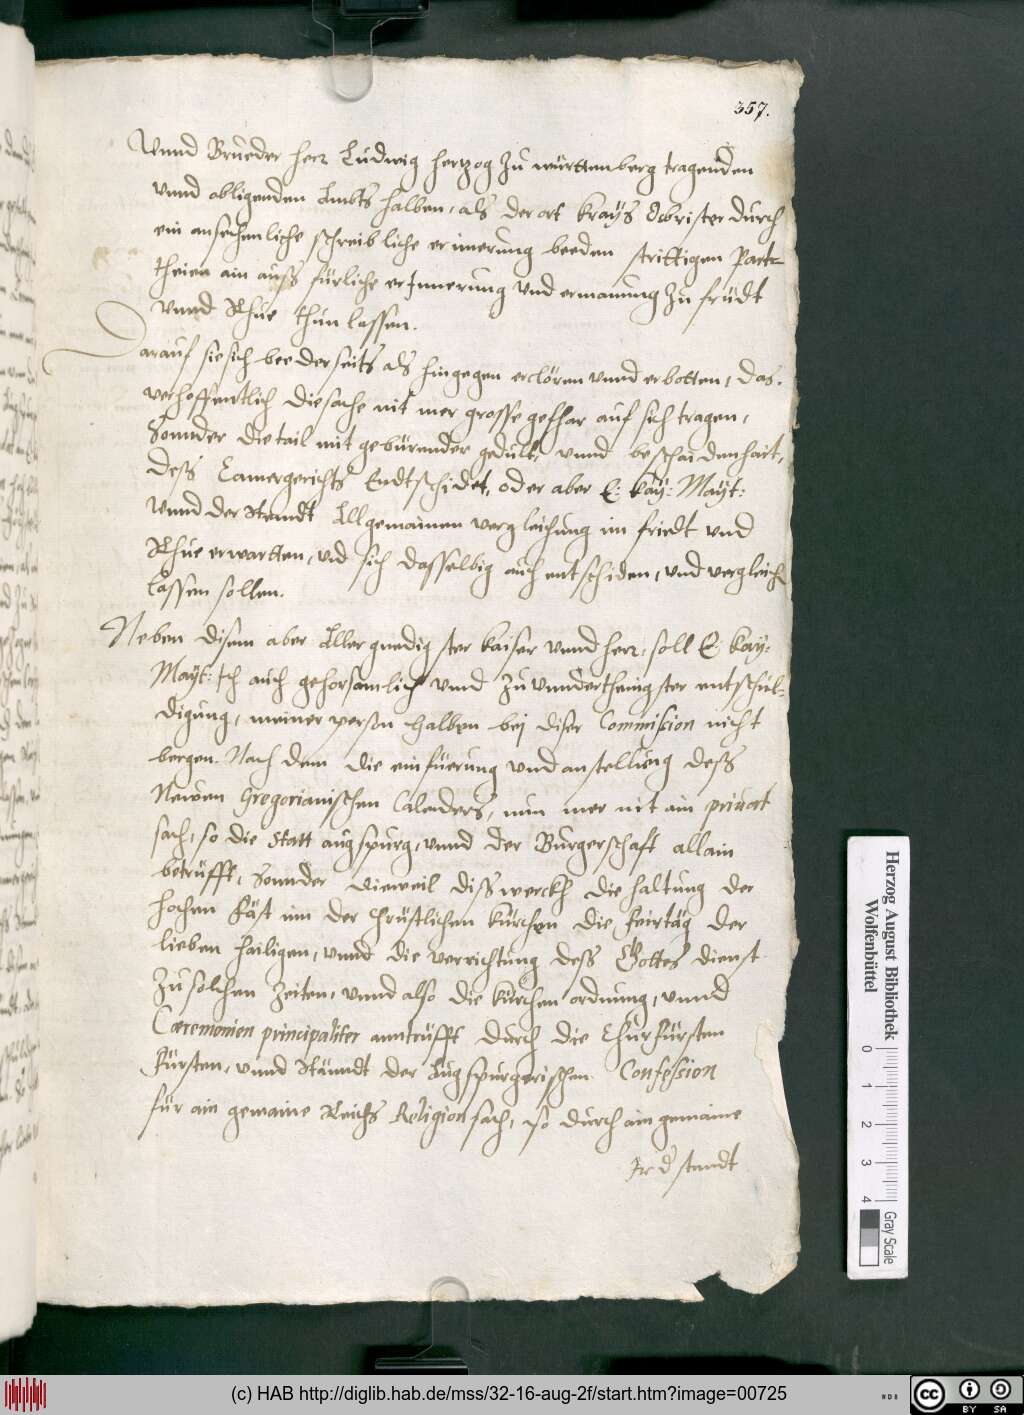 357.
Vnnd Brueder herr Ludwig hertzog zu württenberg tragenden
vnnd obligenden Ambts halben, als der ort krayß Obrister durch
ein ansechenliche schreibliche erinerung beeden strittigen Part-
theien ain außfürliche erJnnerung vnd ermanung zu früdt
vnnd Rhue thun lassen.
Darauf sie sich beederseits als hingegen erclören vnnd erbotten, das.
verhoffentlich die sache nit mer grosse gefhar auf sich tragen,
Sonnder die tail mit gebürender gedult, vnnd beschaidenhait,
deß Camergerichts Endtschidet, oder aber E: Kay: Mayt:
vnnd der Stenndt Allgemainen vergleichung im friedt vnd
Rhue erwartten, vnd sich dasselbig auch entschiden, vnd vergleichen
lassen sollen.
Neben disem aber Allergnedigster kaiser vnnd herr, soll E: Kay:
Mayt: Ich auch gehorsamlich vnnd zu vnndertheinigster entschul-
digung, meiner person halben bei diser Commission nicht
bergen. Nach dem die einfüerung vnd anstellung deß
Newen Gregorianischen Calenders, nun mer nit ain priuat
sach, so die Statt augspurg, vnnd der Burgerschaft allain
betrüfft, Sonnder dieweil diß werckh die haltung der
hochen Fäst inn der Chrüstlichen kürchen die Feirtäg der
lieben hailigen, vnnd die verrichtung deß Gottes dienst
zu solchen zeiten, vnnd also die kürchen ordnung, vnnd
Cæremonien principaliter anntrüfft durch die Churfürsten
Fürsten, vnnd Stänndt der Augspurgerischen Confession
für ain gemaine Reichs Religion sach, so durch ain gemaine
Jr d stenndt
Herzog August Bibliothek
Wolfenbüttel
0 1 2 3 4
Gray Scale
(c) HAB http://diglib.hab.de/mss/32-16-aug-2f/start.htm?image=00725
WDB
cc BY SA